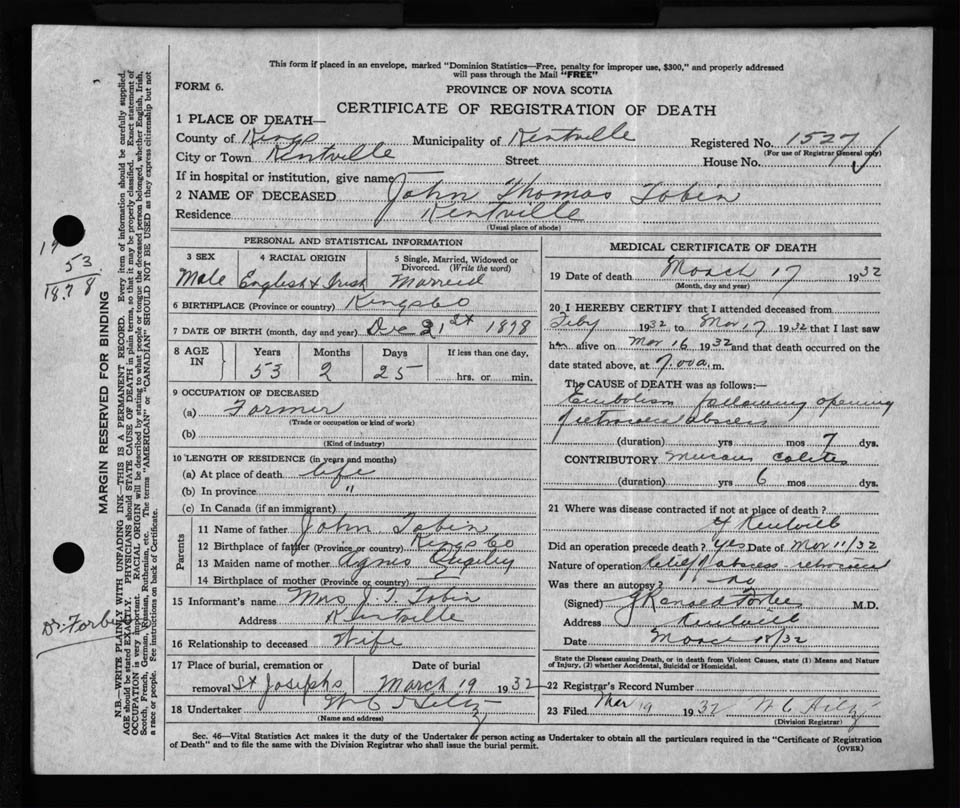 This form if placed in an envelope, marked "Dominion Statistics—Free, penalty for improper use, $300," and properly addressed
will pass through the Mail "FREE"
FORM 6.
PROVINCE OF NOVA SCOTIA
CERTIFICATE OF REGISTRATION OF DEATH
1 PLACE OF DEATH—
County of Kings Municipality of Kentville Registered No. 1527
(For use of Registrar General only)
City or Town Kentville Street House No.
If in hospital or institution, give name
2 NAME OF DECEASED John Thomas Tobin
Residence Kentville
(Usual place of abode)
PERSONAL AND STATISTICAL INFORMATION
3 SEX 4 RACIAL ORIGIN 5 Single, Married, Widowed or Divorced. (Write the word)
Male English & Irish Married
6 BIRTHPLACE (Province or country) Kings Co
7 DATE OF BIRTH (month, day and year) Dec 21st 1878
8 AGE IN Years Months Days If less than one day,
53 2 25 hrs. or min.
9 OCCUPATION OF DECEASED
(a) Farmer
(Trade or occupation or kind of work)
(b)
(Kind of industry)
10 LENGTH OF RESIDENCE (in years and months)
(a) At place of death life
(b) In province "
(c) In Canada (if an immigrant)
Parents
11 Name of father John Tobin
12 Birthplace of father (Province or country) Kings Co
13 Maiden name of mother Agnes
14 Birthplace of mother (Province or country) "
15 Informant's name Mrs J. T. Tobin
Address Kentville
16 Relationship to deceased Wife
17 Place of burial, cremation or removal St Josephs Date of burial March 19 1932
18 Undertaker W C
(Name and address)
MEDICAL CERTIFICATE OF DEATH
19 Date of death March 17 1932
(Month, day and year)
20 I HEREBY CERTIFY that I attended deceased from
Feby 1932 to Mar 17 1932 that I last saw
him alive on Mar 16 1932 and that death occurred on the
date stated above, at 7.00 a.m.
The CAUSE OF DEATH was as follows:—
Embolism following opening
of abscess
(duration) yrs mos 7 dys.
CONTRIBUTORY Mucous colitis
(duration) yrs 6 mos dys.
21 Where was disease contracted if not at place of death?
Kentville
Did an operation precede death? yes Date of Mar 11/32
Nature of operation abscess
Was there an autopsy? no
(Signed) Forbes M.D.
Address Kentville
Date March 18/32
State the Disease causing Death, or in death from Violent Causes, state (1) Means and Nature
of Injury, (2) whether Accidental, Suicidal or Homicidal.
22 Registrar's Record Number
23 Filed Mar 19 1932 W C
(Division Registrar)
Sec. 46—Vital Statistics Act makes it the duty of the Undertaker or person acting as Undertaker to obtain all the particulars required in the "Certificate of Registration
of Death" and to file the same with the Division Registrar who shall issue the burial permit.
(OVER)
MARGIN RESERVED FOR BINDING
N.B.—WRITE PLAINLY WITH UNFADING INK—THIS IS A PERMANENT RECORD. Every item of information should be carefully supplied.
AGE should be stated EXACTLY. PHYSICIANS should STATE CAUSE OF DEATH in plain terms, so that it may be properly classified. Exact statement of
OCCUPATION is very important. RACIAL ORIGIN will be described by stating to what people or tongue the deceased person belonged, whether English, Irish,
Scotch, French, German, Russian, Ruthenian, etc. The terms "AMERICAN" or "CANADIAN" SHOULD NOT BE USED as they express citizenship but not
a race or people. See instructions on back of Certificate.
53
1878
Dr. Forbes